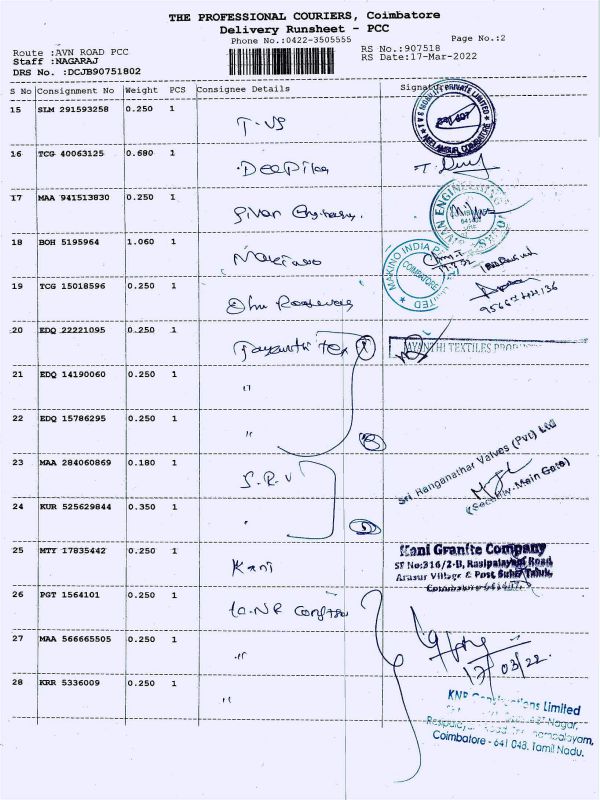 THE PROFESSIONAL COURIERS, Coimbatore
Delivery Runsheet - PCC
Phone No.:0422-3505555
Page No.:2
Route :AVN ROAD PCC
RS No.:907518
Staff :NAGARAJ
RS Date:17-Mar-2022
DRS No. :DCJB90751802
S No Consignment No Weight PCS Consignee Details Signature
15 SLM 291593258 0.250 1
T-VS
16 TCG 40063125 0.680 1
Deepika
17 MAA 941513830 0.250 1
18 BOH 5195964 1.060 1
MAKINO INDIA
COIMBATORE
LIMITED
19 TCG 15018596 0.250 1
20 EDQ 22221095 0.250 1
Jayanthi Tex
JAYANTHI TEXTILES
21 EDQ 14190060 0.250 1
"
22 EDQ 15786295 0.250 1
"
23 MAA 284060869 0.180 1
S.R.V
Sri Ranganathar Valves (Pvt) Ltd
(Security-Main Gate)
24 KUR 525629844 0.350 1
"
25 MTY 17835442 0.250 1
Kani
Kani Granite Company
SF No:316/2-B, Rasipalayam Road,
Arasur Village & Post, Sulur Taluk,
26 PGT 1564101 0.250 1
27 MAA 566665505 0.250 1
"
17/03/22
28 KRR 5336009 0.250 1
"
KNR Constructions Limited
Coimbatore - 641 048. Tamil Nadu.